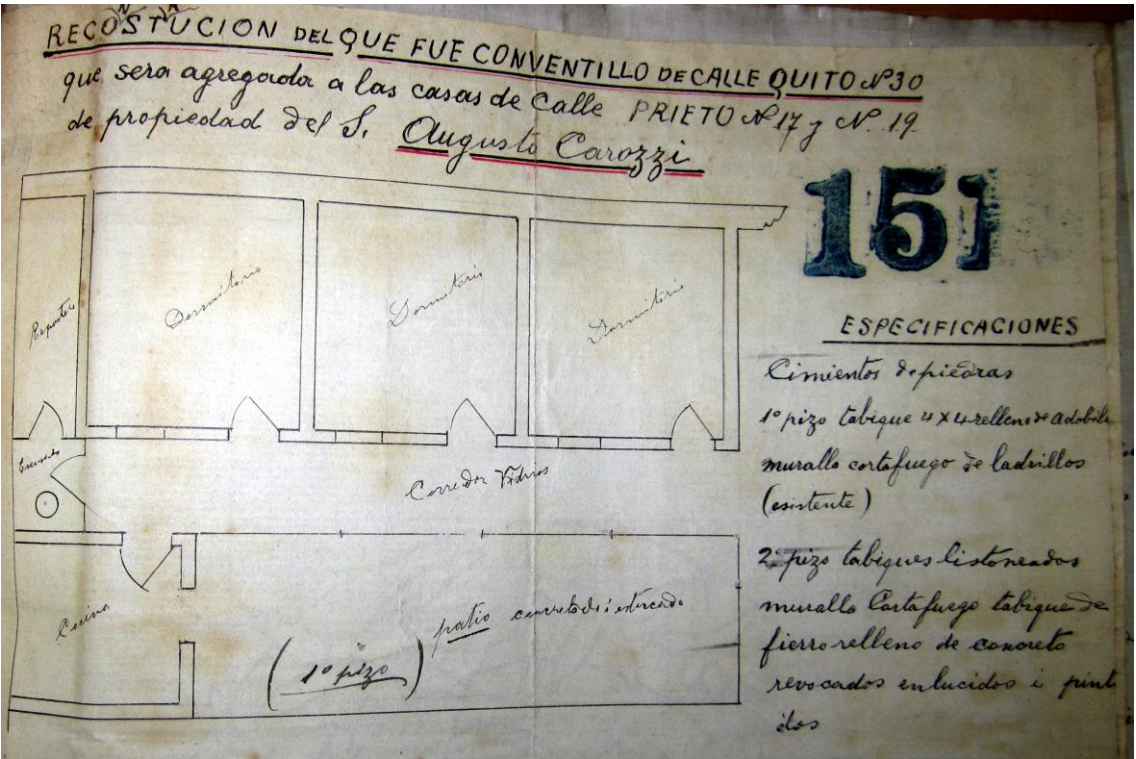 RECOSTUCION DEL QUE FUE CONVENTILLO DE CALLE QUITO Nº30
N N
que sera agregada a las casas de Calle PRIETO Nº 17 y Nº. 19
de propiedad del S. Augusto Carozzi
151
Dormitorio
Dormitorio
Dormitorio
Corredor Vidrios
Cocina
patio concretado i estucado
(1º pizo)
ESPECIFICACIONES
Cimientos de piedras
1º pizo tabique 4 x 4 relleno de adobill
murallo cortafuego de ladrillos
(esistente)
2º pizo tabiques listoneados
murallo Cortafuego tabique de
fierro relleno de concreto
revocados enlucidos i pint
dos